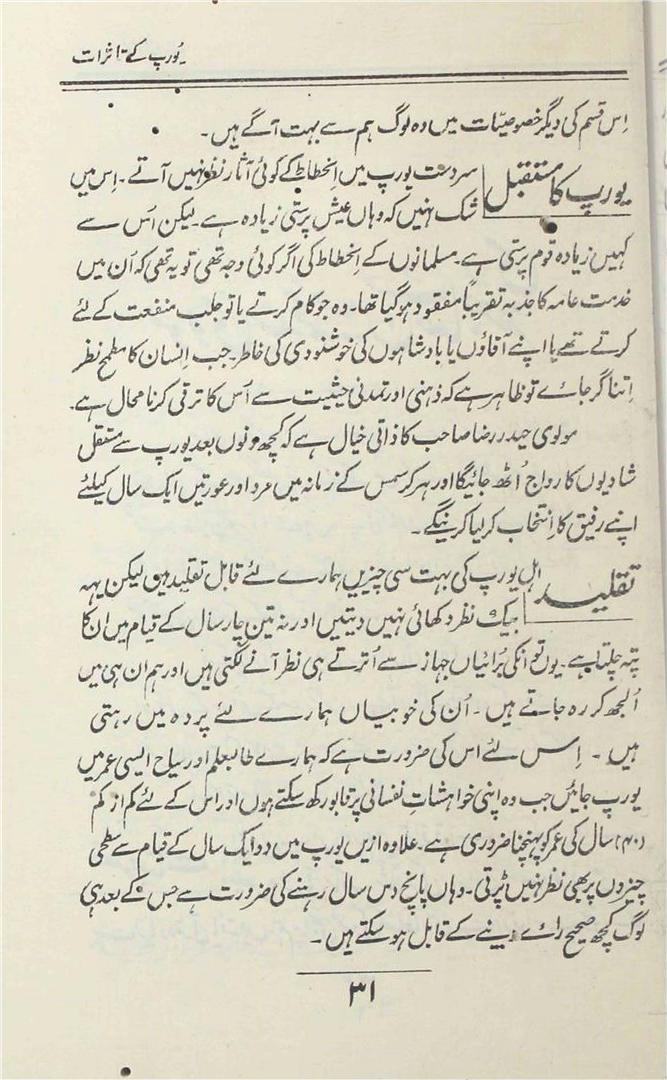 یورپ کے تاثرات
اِس قسم کی دیگر خصوصیّات میں وہ لوگ ہم سے بہت آگے ہیں۔
یورپ کا مستقبل سردست یورپ میں اِنحطاط کے کوئی آثار نظر نہیں آتے۔ اِس میں
شک نہیں کہ وہاں عیش پرستی زیادہ ہے۔ لیکن اُس سے
کہیں زیادہ قوم پرستی ہے۔ مسلمانوں کے اِنحطاط کی اگر کوئی وجہ تھی تو یہ تھی کہ اُن میں
خدمت عامہ کا جذبہ تقریباً مفقود ہو گیا تھا۔ وہ جو کام کرتے یا تو جلب منفعت کے لئے
کرتے تھے یا اپنے آقاؤں یا بادشاہوں کی خوشنودی کی خاطر۔ جب اِنسان کا مطمح نظر
اِتنا گر جائے تو ظاہر ہے کہ ذہنی اور تمدنی حیثیت سے اُس کا ترقی کرنا محال ہے۔
مولوی حیدر رضا صاحب کا ذاتی خیال ہے کہ کچھ دنوں بعد یورپ سے مستقل
شادیوں کا رواج اُٹھ جائیگا اور ہر کرسمس کے زمانہ میں مرد اور عورتیں ایک سال کیلئے
اپنے رفیق کا اِنتخاب کر لیا کرینگے۔
تقلید اہل یورپ کی بہت سی چیزیں ہمارے لئے قابل تقلید ہیں لیکن یہہ
بیک نظر دکھائی نہیں دیتیں اور نہ تین چار سال کے قیام میں ان کا
پتہ چلتا ہے۔ یوں تو انکی بُرائیاں جہاز سے اُترتے ہی نظر آنے لگتی ہیں اور ہم ان ہی میں
اُلجھ کر رہ جاتے ہیں۔ اُن کی خوبیاں ہمارے لئے پردہ میں رہتی
ہیں۔ اِس لئے اس کی ضرورت ہے کہ ہمارے طالبعلم اور سیاح ایسی عمر میں
یورپ جائیں جب وہ اپنی خواہشاتِ نفسانی پر قابو رکھ سکتے ہوں اور اس کے لئے کم از کم
(۴۰) سال کی عمر کو پہنچنا ضروری ہے۔ علاوہ ازیں یورپ میں دو ایک سال کے قیام سے سطحی
چیزوں پر بھی نظر نہیں پڑتی۔ وہاں پانچ دس سال رہنے کی ضرورت ہے جس کے بعد ہی
لوگ کچھ صحیح رائے دینے کے قابل ہو سکتے ہیں۔
۳۱